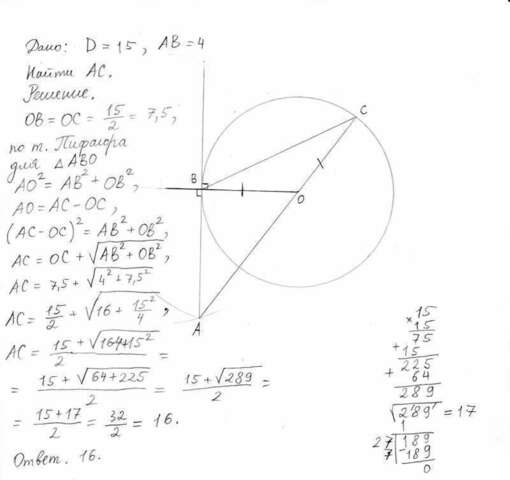 Дано: D = 15, AB = 4
Найти AC.
Решение.
OB = OC = 15/2 = 7,5,
по т. Пифагора
для △ABO
AO² = AB² + OB²,
AO = AC - OC,
(AC - OC)² = AB² + OB²,
AC = OC + √(AB² + OB²),
AC = 7,5 + √(4² + 7,5²)
AC = 15/2 + √(16 + 15²/4),
AC = (15 + √(164+15²))/2 =
= (15 + √(64 + 225))/2 = (15 + √289)/2 =
= (15 + 17)/2 = 32/2 = 16.
Ответ. 16.
B
C
O
A
15
× 15
75
+ 15
225
+ 64
289
√289 = 17
1
27 | 189
7 | - 189
0